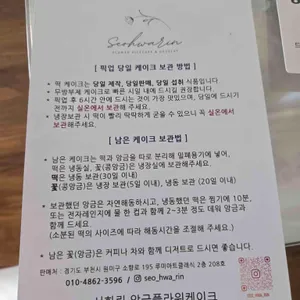 Seohwarin
FLOWER RICECAKE & DESSERT
[ 픽업 당일 케이크 보관 방법 ]
• 떡 케이크는 당일 제작, 당일판매, 당일 섭취 식품입니다
• 무방부제 케이크로 빠른 시일 내에 드시길 권장합니다.
• 픽업 후 6시간 안에 드시는 것이 가장 맛있으며, 당일에 드시기
전까지 꼭 실온에서 보관해주세요.
• 냉장보관 시 떡이 빨리 딱딱하게 굳을 수 있으니 꼭 실온에서
보관해주세요.
[ 남은 케이크 보관법 ]
• 남은 케이크는 떡과 앙금을 따로 분리해 밀폐용기에 넣어,
떡은 냉동실, 꽃(콩앙금)은 냉장실에 보관해주세요.
떡은 냉동 보관 (30일 이내)
꽃(콩앙금)은 냉장 보관(5일 이내), 냉동 보관 (20일 이내)
• 보관했던 앙금은 자연해동하시고, 냉동했던 떡은 찜기에 10분,
또는 전자레인지에 물 한 컵과 함께 2~3분 정도 데워 앙금과
함께 드세요.
(소분된 떡의 사이즈에 따라 해동시간을 조절해 주세요.)
• 남은 꽃(앙금)은 커피나 차와 함께 디저트로 드시면 좋습니다.
판매처 : 경기도 부천시 원미구 소향로 195 루미아트클래식 2층 208호
010-4862-3596 / seo_hwa_rin
서화린 앙금플라워케이크